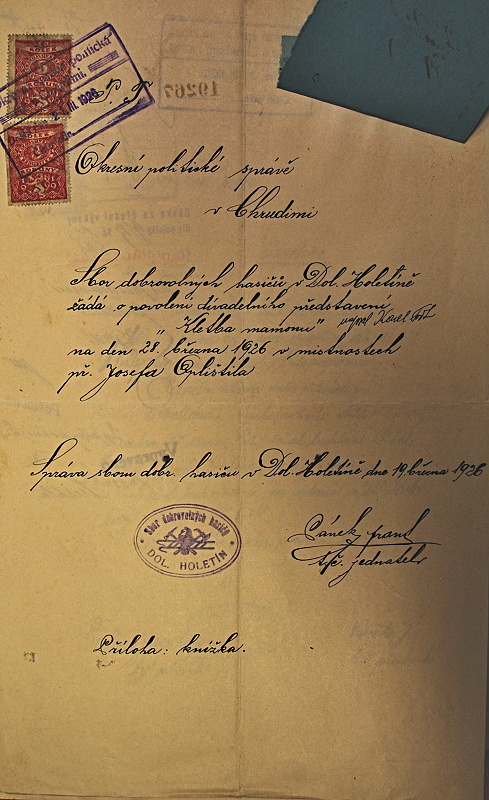 KOLEK
5
KORUNY
politická
1926
P. T.
19267
KOLEK
KORUNY
Okresní politické správě
v Chrudimi
Sbor dobrovolných hasičů v Dol. Holetíně
žádá o povolení divadelního představení
„Kletba mamonu" napsal Karel
na den 28. března 1926 v místnostech
př. Josefa Oplištila
Správa sboru dobr. hasičů v Dol. Holetíně dne 19. března 1926
Sbor dobrovolných hasičů
DOL. HOLETÍN
Pánek Frant
t.č. jednatel
Příloha: knížka.